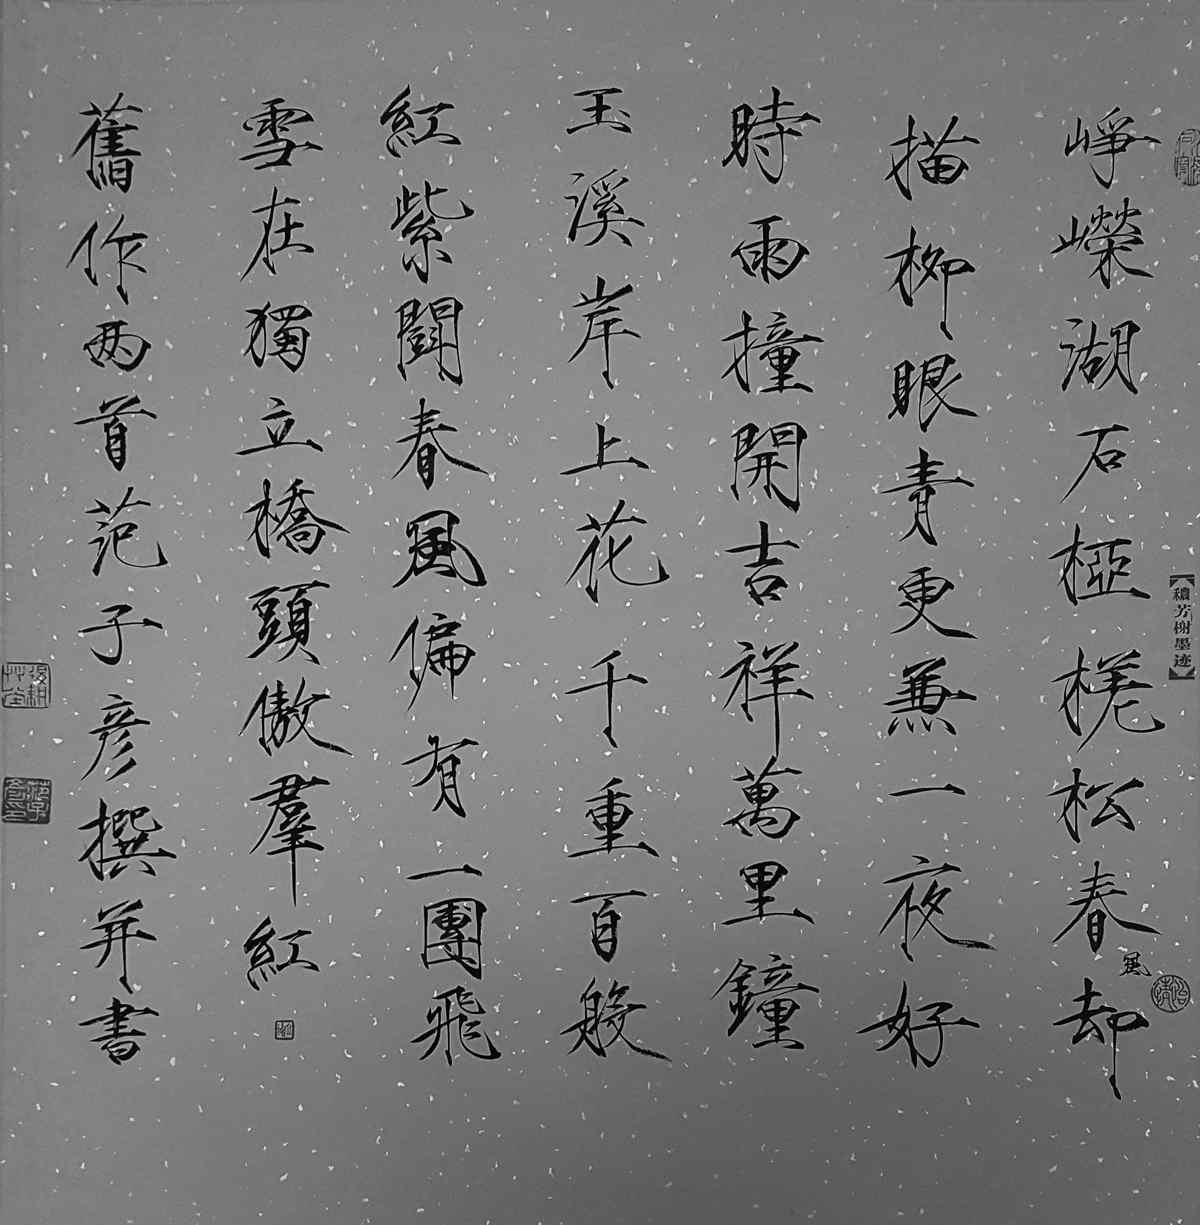 崢嶸湖石椏槎松春風却
描柳眼青更兼一夜好
時雨撞開吉祥萬里鐘
玉溪岸上花千重百般
紅紫鬪春風偏有一團飛
雪在獨立橋頭傲羣紅
舊作两首范子彥撰并書
【穠芳榭墨迹】